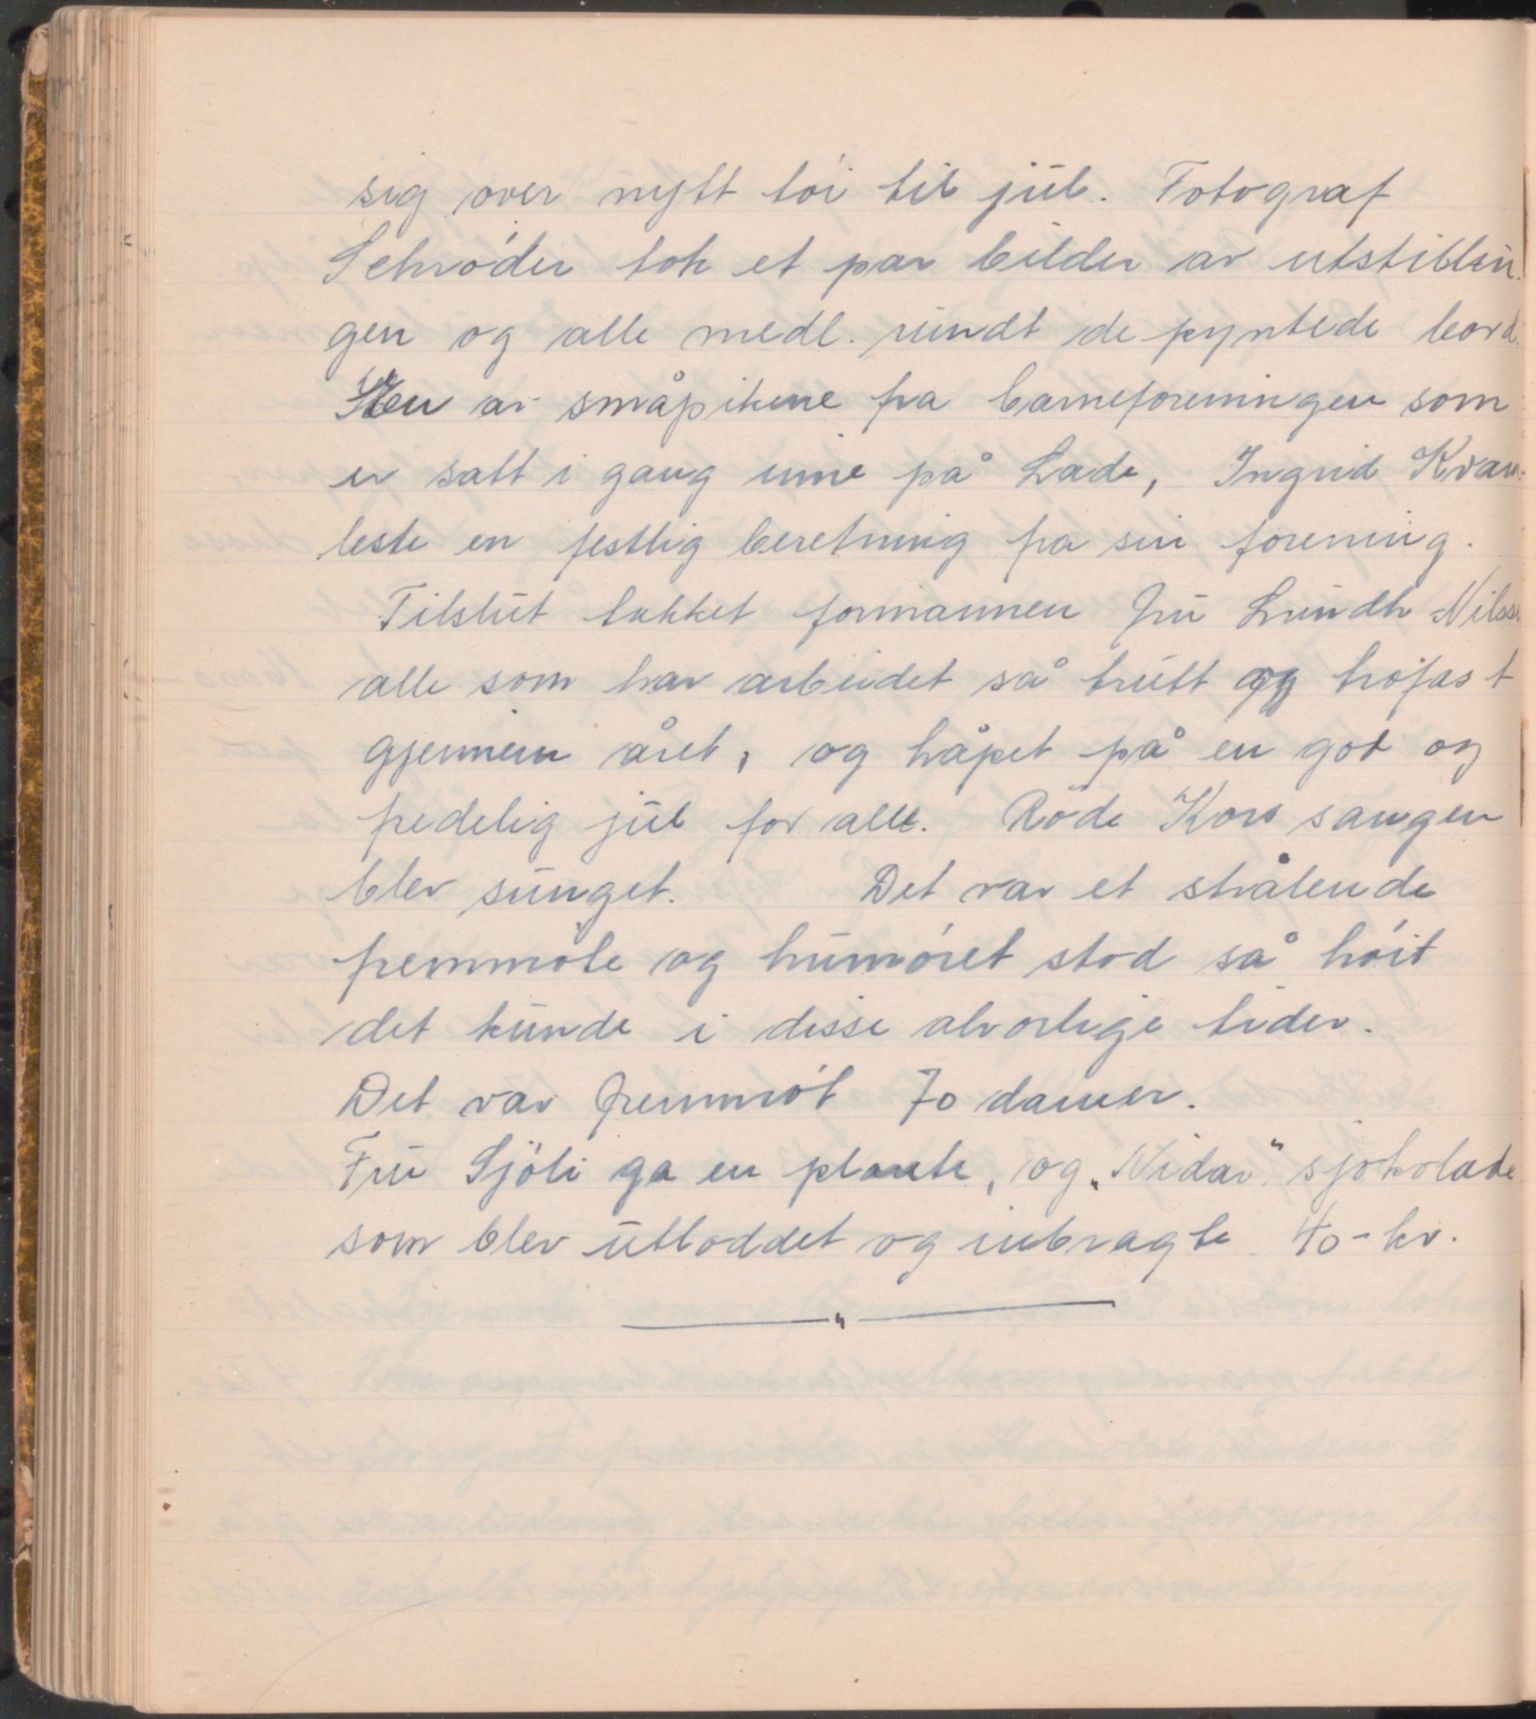 sig over nytt tói til jul. Fotograf
Schrøder tok et par bilder av utstillin
gen og alle medl. rundt de pyntede bord.
En av småpikene fra barneforeningen som
er satt i gang inne på Lade, Ingrid Kvam
leste en festlig beretning fra sin forening.
Tilslut takket formannen fru Lundh Nilss
alle som har arbeidet så trutt og trofast
gjennem året, og håpet på en god og
fredelig jul for alle. Røde Kors sangen
blev sunget. Det var et strålende
fremmøte og humóret stod så hóit
det kunde i disse alvorlige tider.
Det var fremmót 70 damer.
Fru Sjöli ga en plante, og „Nidar" sjokolade
som blev utloddet og inbragte 40-kr.